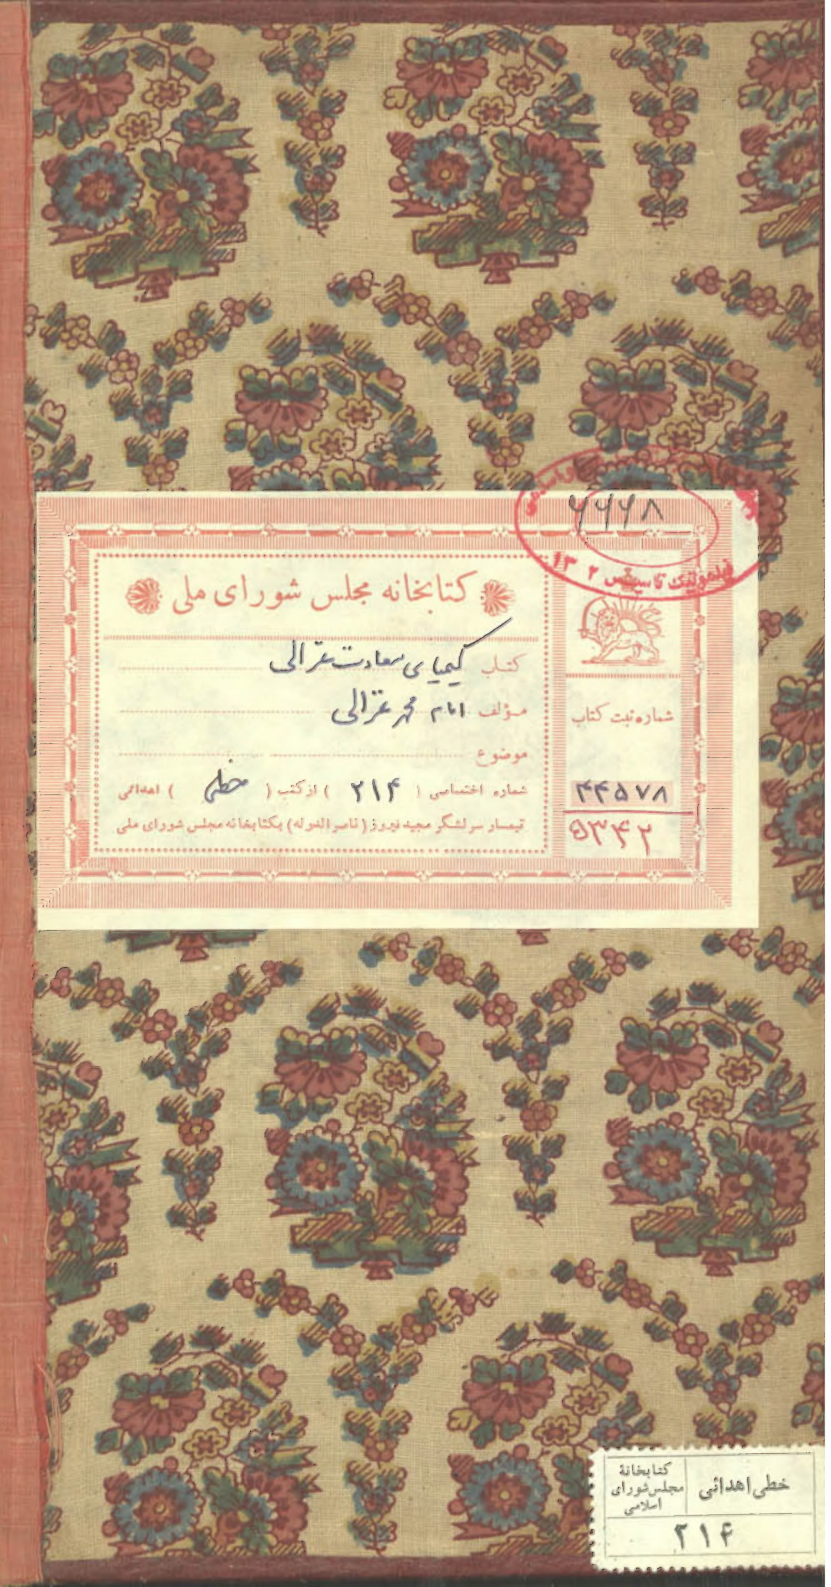 ۶۶۶۸
کتابخانه مجلس شورای ملی
کتاب کیمیای سعادت غزالی
مؤلف امام محمد غزالی
موضوع
شماره اختصاصی ( ۲۱۴ ) از کتب ( خطی ) اهدائی
تیمسار سرلشگر مجید فیروز (ناصرالدوله) بکتابخانه مجلس شورای ملی
شماره ثبت کتاب
۴۴۵۷۸
۵۳۴۲
خطی اهدائی
کتابخانهٔ
مجلس شورای
اسلامی
۲۱۴